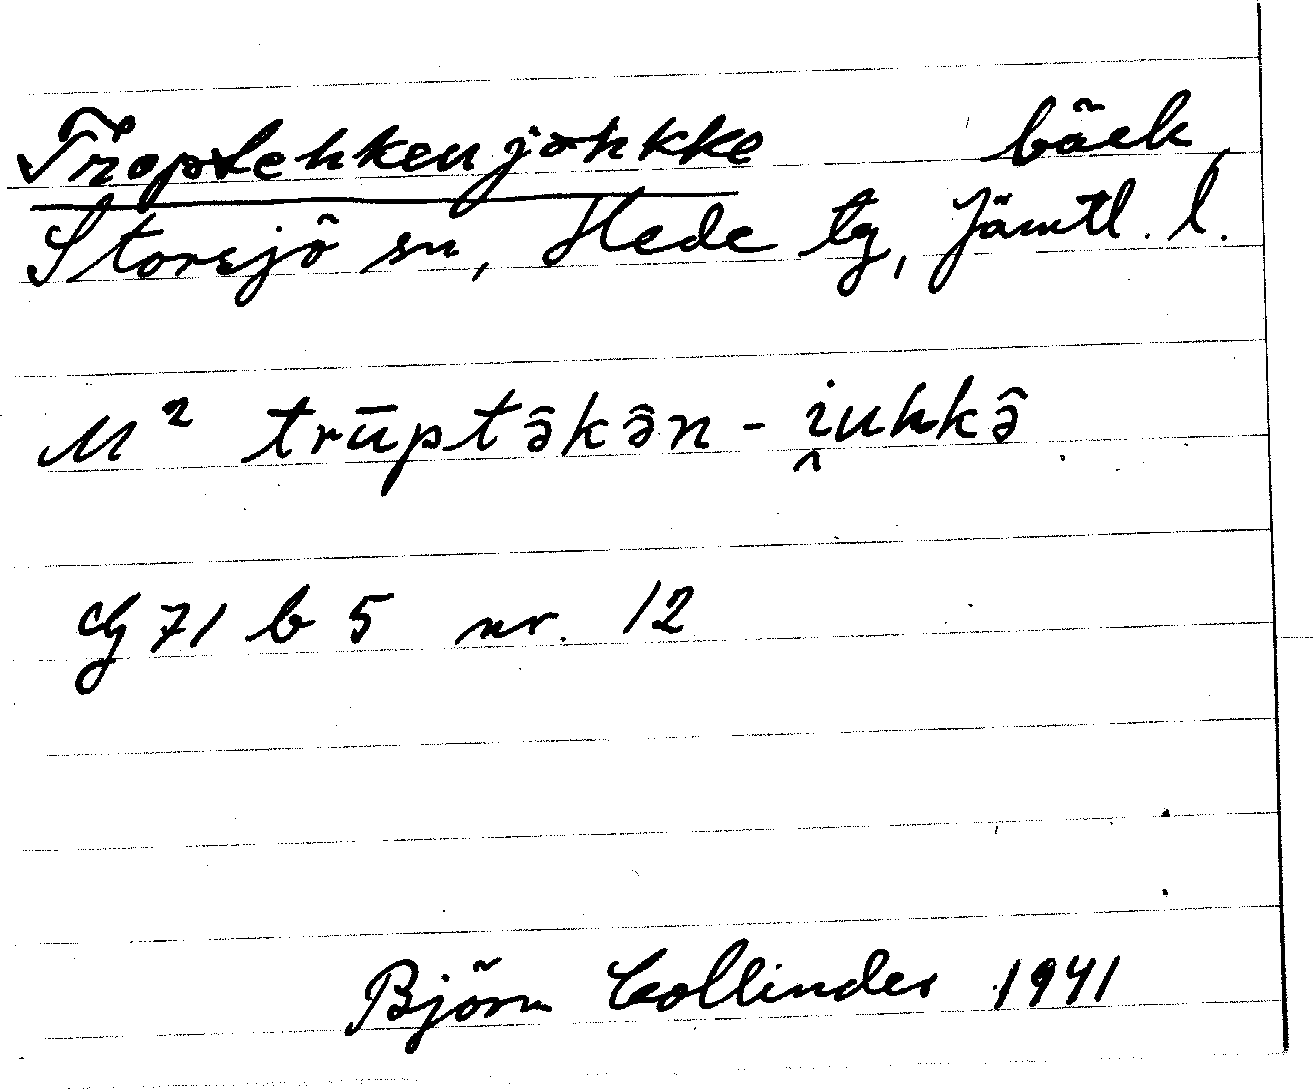 Troptehkenjohkke bäck,
Storsjö sn, Hede tg, Jämtl. l.
M² trūptə̂kə̂n - i̭uhkə̂
G 71 b 5 nr. 12
Björn Collinder 1941